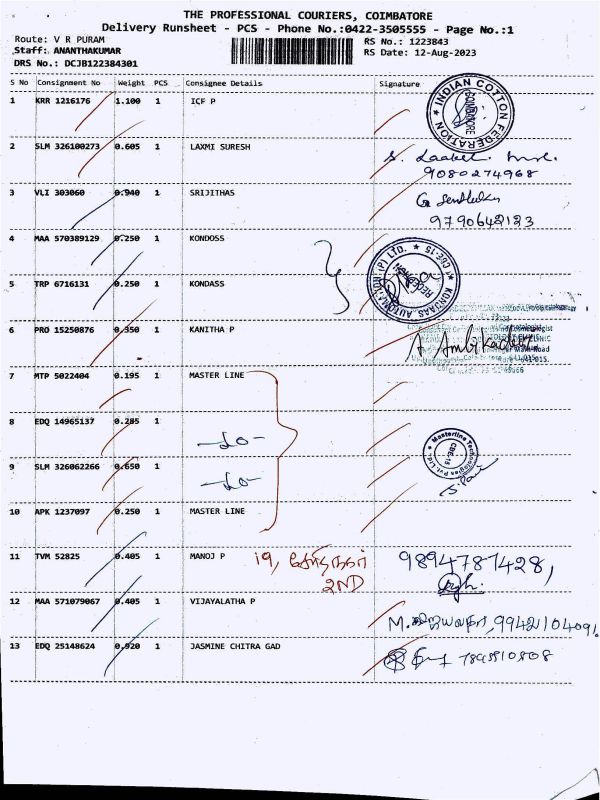 THE PROFESSIONAL COURIERS, COIMBATORE
Delivery Runsheet - PCS - Phone No.:0422-3505555 - Page No.:1
Route: V R PURAM
RS No.: 1223843
Staff: ANANTHAKUMAR
RS Date: 12-Aug-2023
DRS No.: DCJB122384301
S No Consignment No Weight PCS Consignee Details Signature
1 KRR 1216176 1.100 1 ICF P
INDIAN COTTON FEDERATION
2 SLM 326100273 0.605 1 LAXMI SURESH
9080274968
3 VLI 303060 0.940 1 SRIJITHAS
9790642123
4 MAA 570389129 0.250 1 KONDOSS
KONJAAS AUTOMATION (P) LTD. CBE-15
5 TRP 6716131 0.250 1 KONDASS
6 PRO 15250876 0.350 1 KANITHA P
7 MTP 5022404 0.195 1 MASTER LINE
8 EDQ 14965137 0.285 1 -do-
Masterline Technologies Pvt. Ltd. CBE-15
9 SLM 326062266 0.650 1 -do-
10 APK 1237097 0.250 1 MASTER LINE
11 TVM 52825 0.405 1 MANOJ P 19, 2ND 9894787428,
12 MAA 571079067 0.405 1 VIJAYALATHA P M. விஜயலதா, 9942104091.
13 EDQ 25148624 0.920 1 JASMINE CHITRA GAD